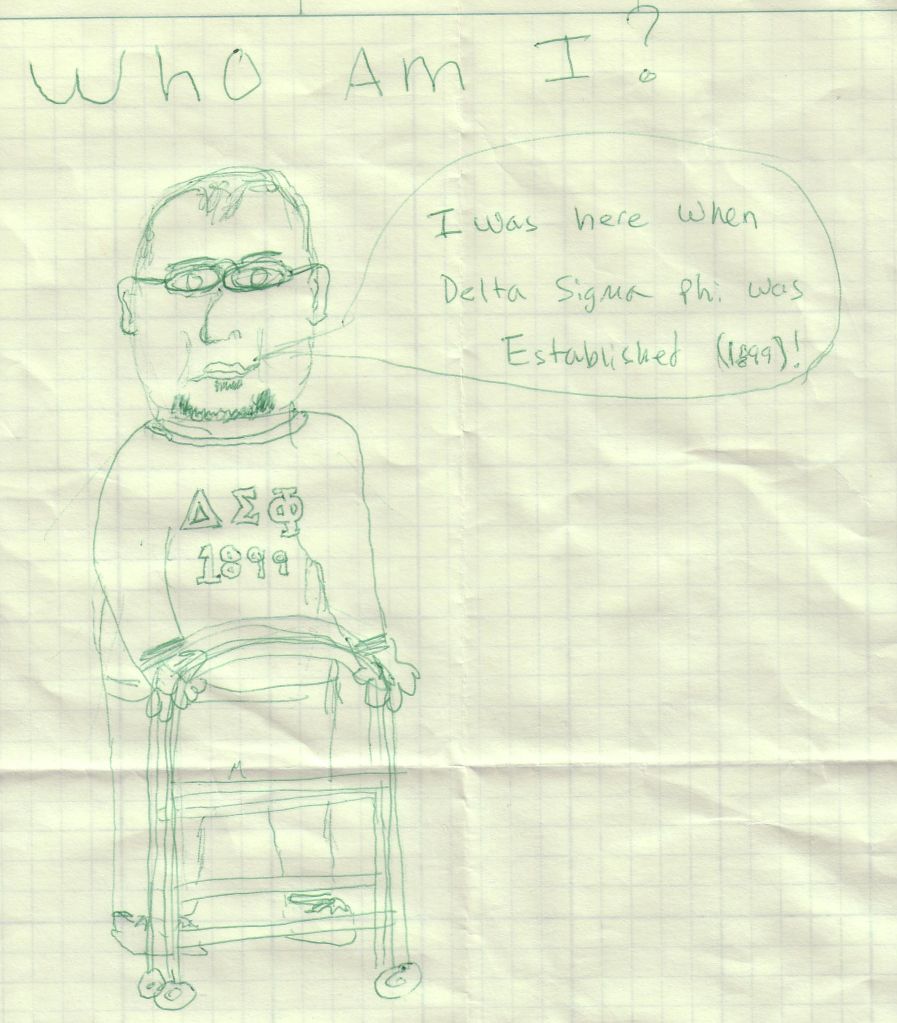 Who Am I?
I was here when
Delta Sigma Phi was
Established (1899)!
ΔΣΦ
1899
M